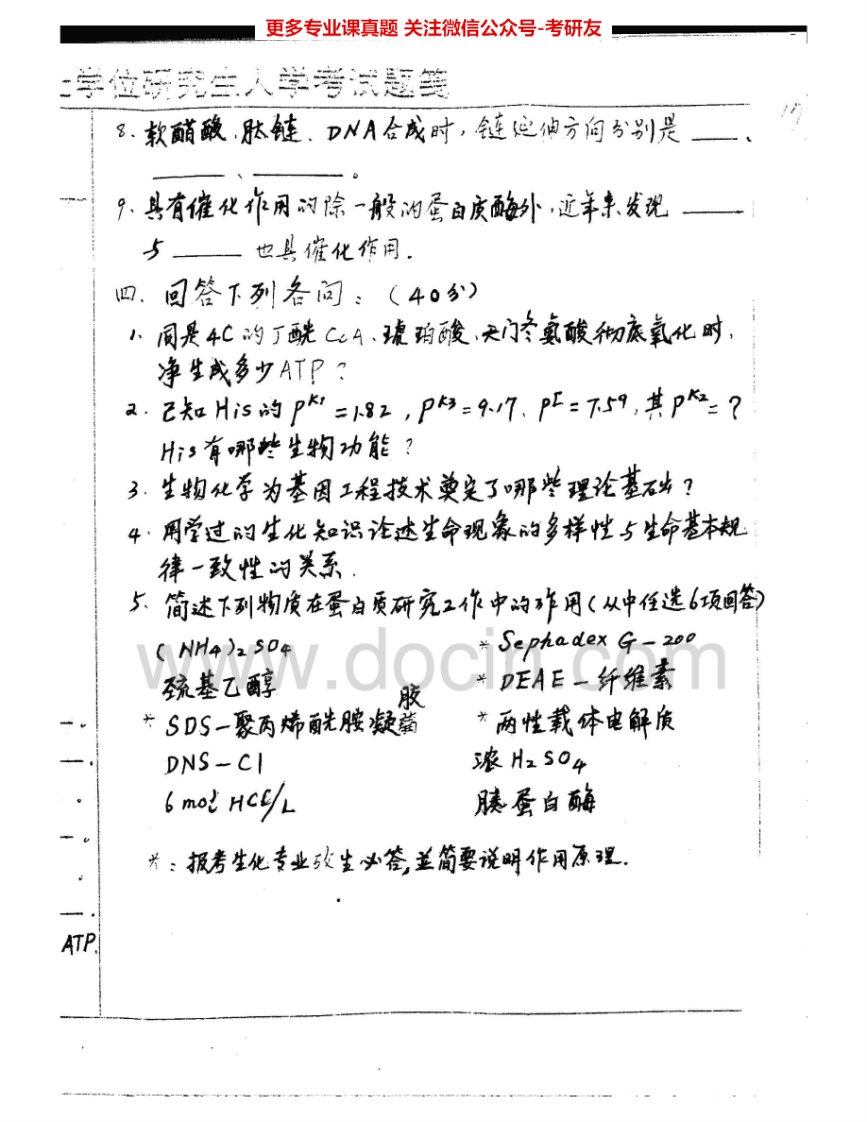 更多专业课真题 关注微信公众号-考研友
学位研究生入学考试题笺
8. 软醋酸、肽链、DNA合成时,链延伸方向分别是 ____、
____、____。
9. 具有催化作用的除一般的蛋白质酶外,近年来发现 ____
与 ____ 也具催化作用.
四. 回答下列各问:(40分)
1. 同是4C的丁酰CoA、琥珀酸、天门冬氨酸彻底氧化时,
净生成多少ATP?
2. 已知His的pK1=1.82,pK3=9.17、pI=7.59,其pK2=?
His有哪些生物功能?
3. 生物化学为基因工程技术奠定了哪些理论基础?
4. 用学过的生化知识论述生命现象的多样性与生命基本规
律一致性的关系.
5. 简述下列物质在蛋白质研究工作中的作用(从中任选6项回答)
(NH4)2SO4
* Sephadex G-200
巯基乙醇
* DEAE-纤维素
* SDS-聚丙烯酰胺凝胶
* 两性载体电解质
DNS-Cl
浓H2SO4
6 mol HCl/L
胰蛋白酶
*:报考生化专业考生必答,并简要说明作用原理.
ATP.
www.docin.com